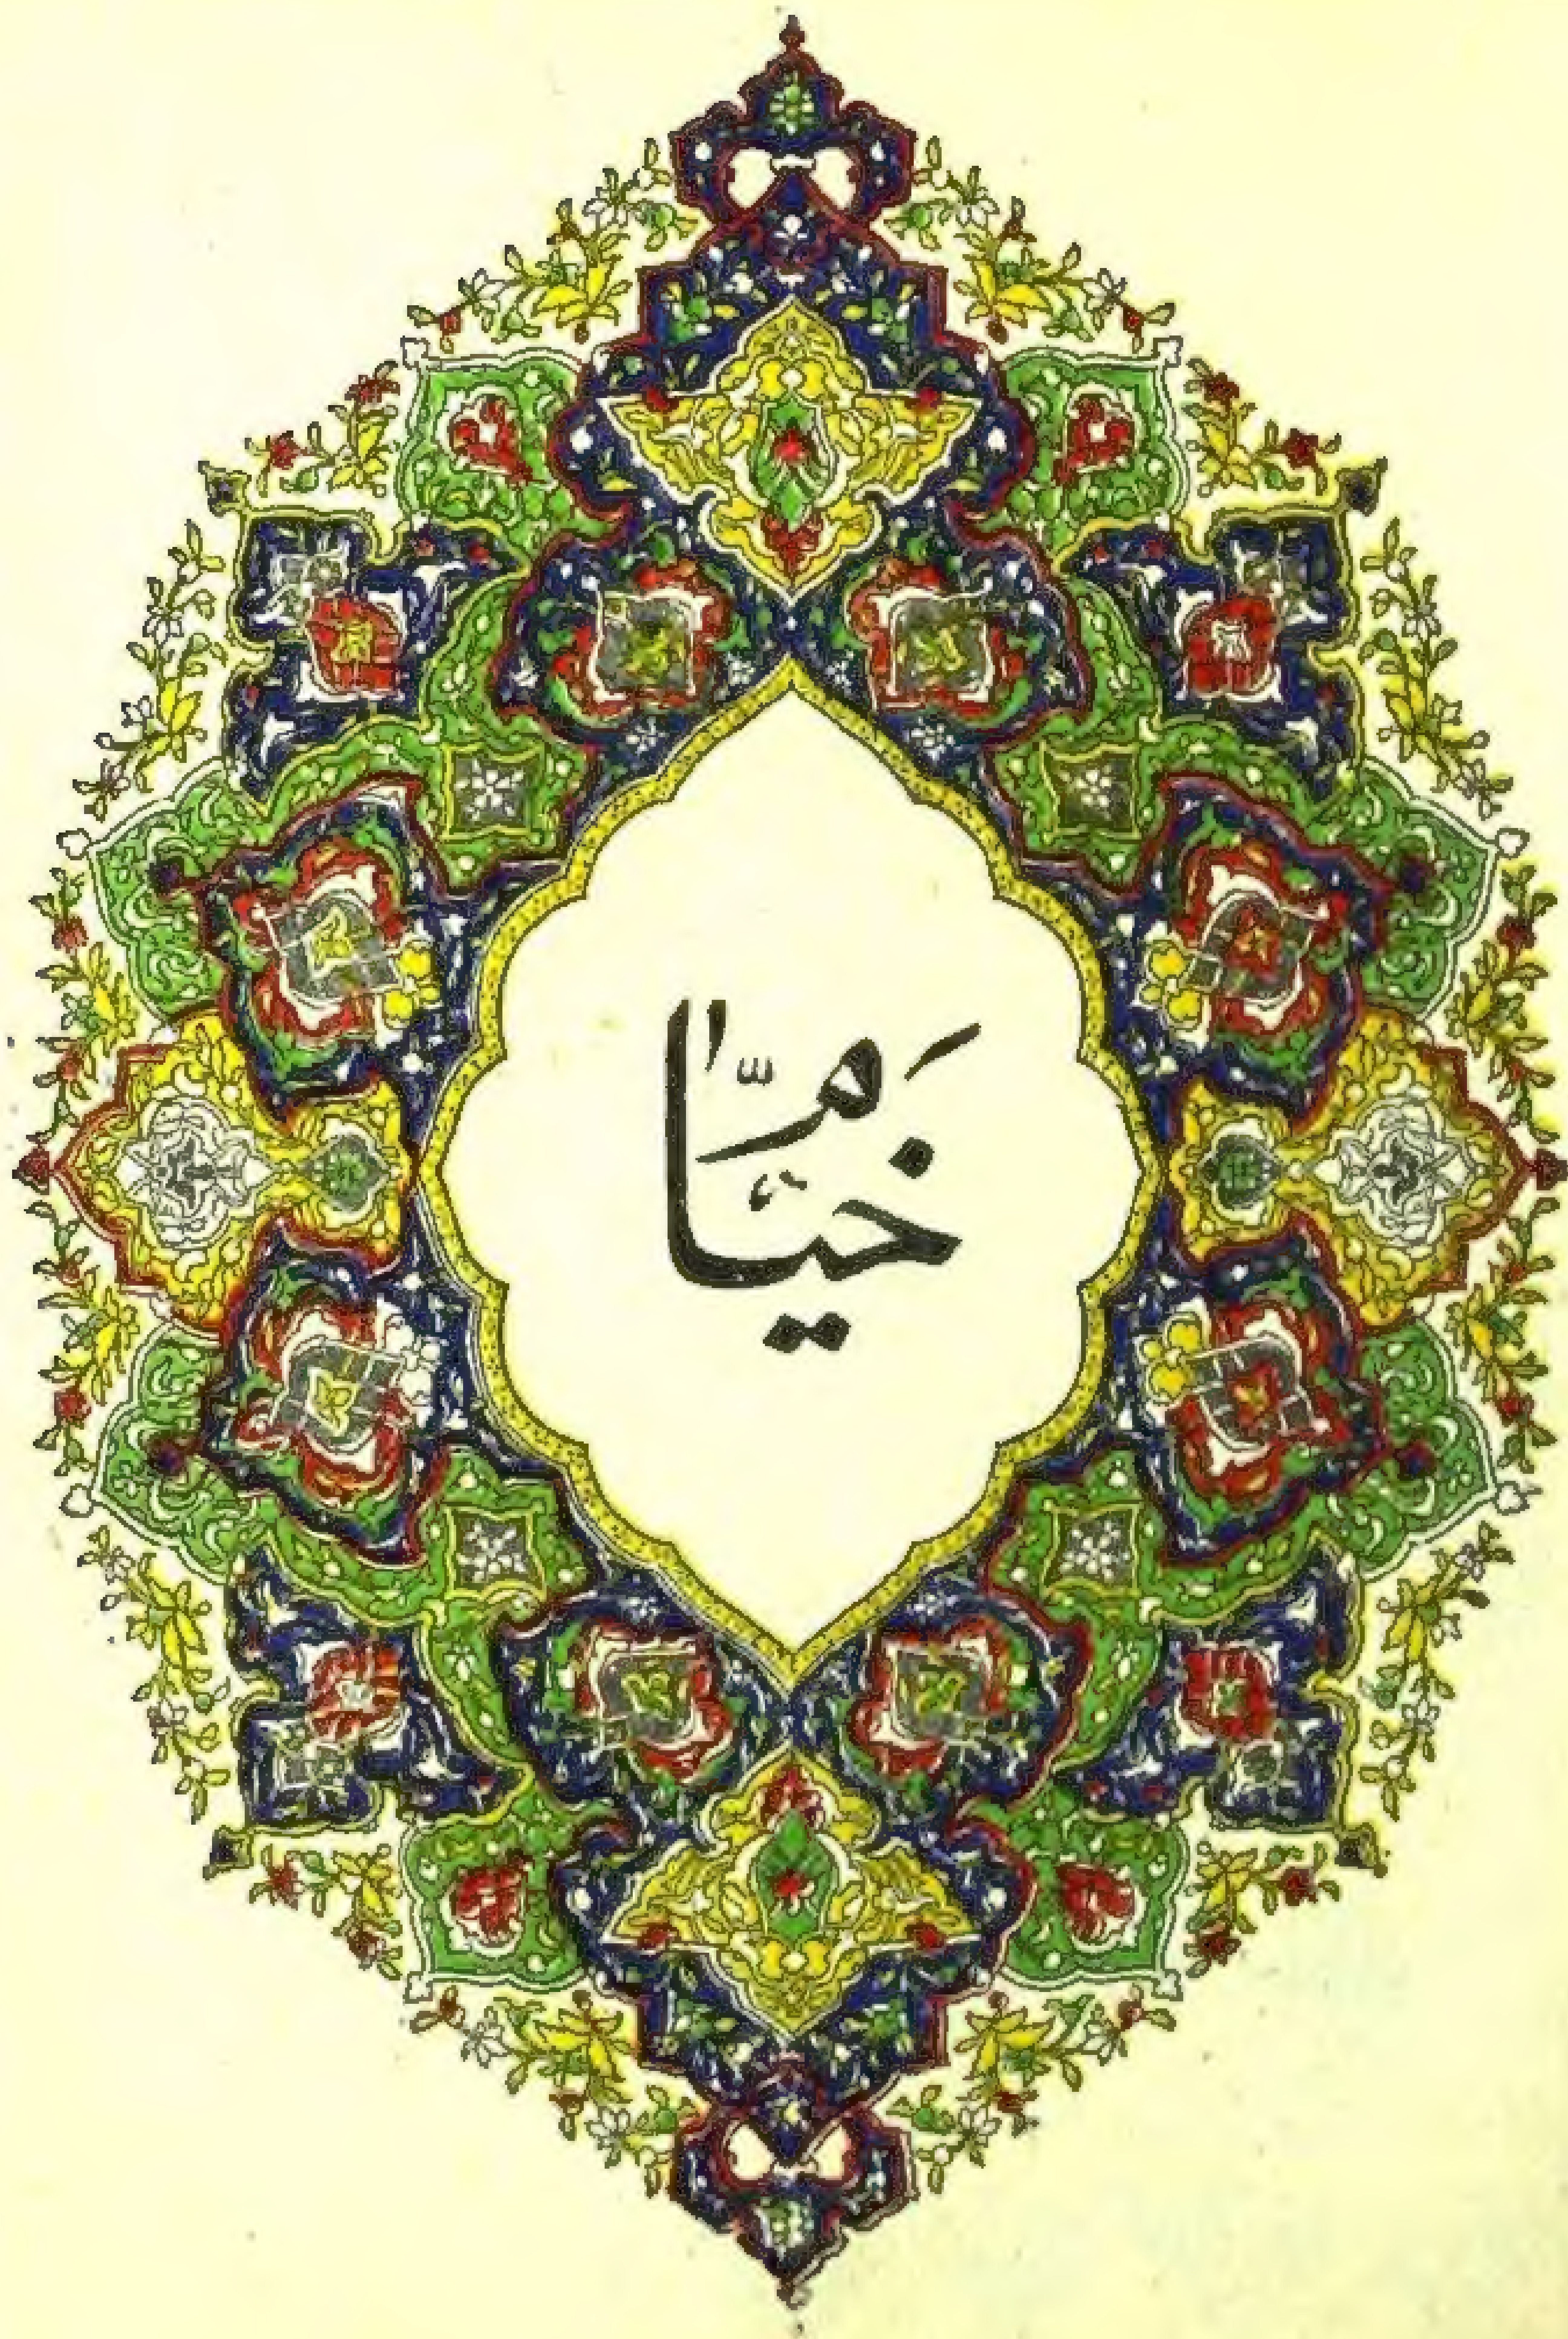 خَیّام